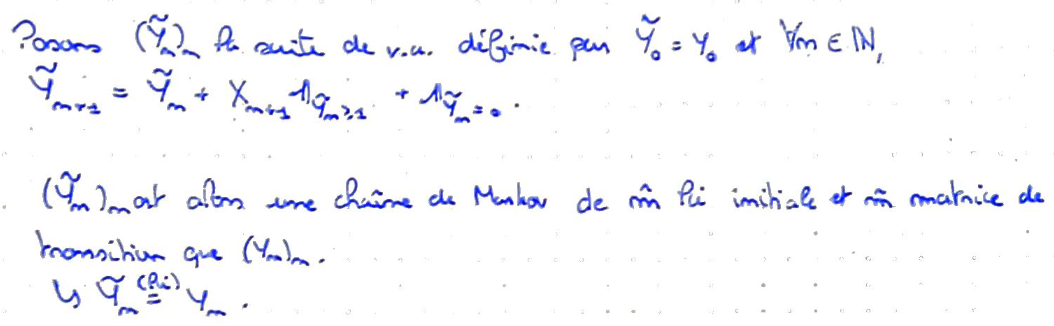 Posons (Ỹₙ)ₙ la suite de v.a. définie par Ỹ₀ = Y₀ et ∀n ∈ ℕ,
Ỹₙ₊₁ = Ỹₙ + Xₙ₊₁ 𝟙_{Ỹₙ≥1} + 𝟙_{Ỹₙ=0}.
(Ỹₙ)ₙ est alors une chaîne de Markov de m̂ loi initiale et m̂ matrice de
transition que (Yₙ)ₙ.
↳ Ỹₙ =^{(loi)} Yₙ.